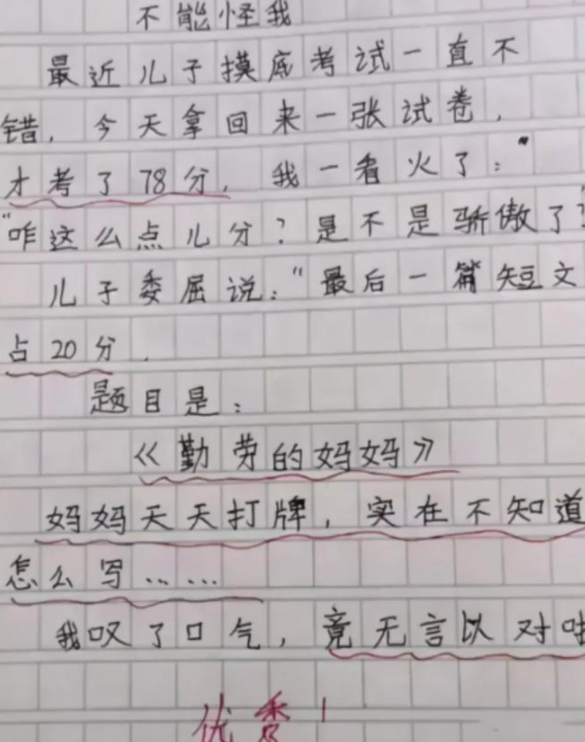 不能怪我
最近儿子摸底考试一直不
错，今天拿回来一张试卷，
才考了78分，我一看火了："
"咋这么点儿分？是不是骄傲了？
儿子委屈说："最后一篇短文
占20分．
题目是：
《勤劳的妈妈》
妈妈天天打牌，实在不知道
怎么写……
我叹了口气，竟无言以对
优秀！